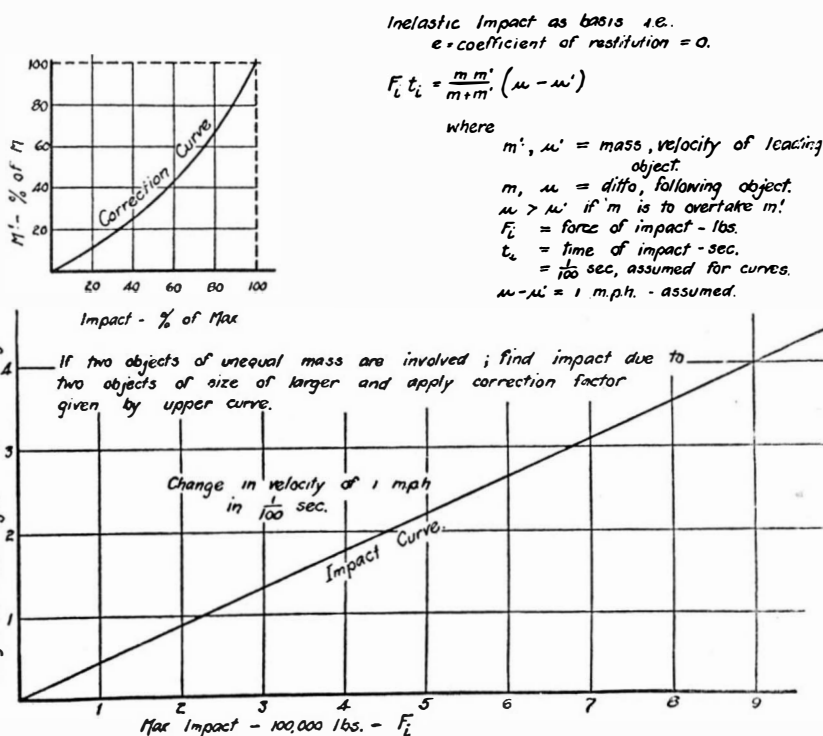 Inelastic Impact as basis i.e.
e = coefficient of restitution = 0.
F_i t_i = m m' / m+m' (u - u')
where
m', u' = mass, velocity of leading
object.
m, u = ditto, following object.
u > u' if m is to overtake m'.
F_i = force of impact - lbs.
t_i = time of impact - sec.
= 1/100 sec, assumed for curves.
u - u' = 1 m.p.h. - assumed.
M' - % of M
100
80
60
40
20
Correction Curve
20 40 60 80 100
Impact - % of Max
If two objects of unequal mass are involved ; find impact due to
two objects of size of larger and apply correction factor
given by upper curve.
Change in velocity of 1 mph
in 1/100 sec.
Impact Curve.
4
3
2
1
1 2 3 4 5 6 7 8 9
Max Impact - 100,000 lbs. - F_i